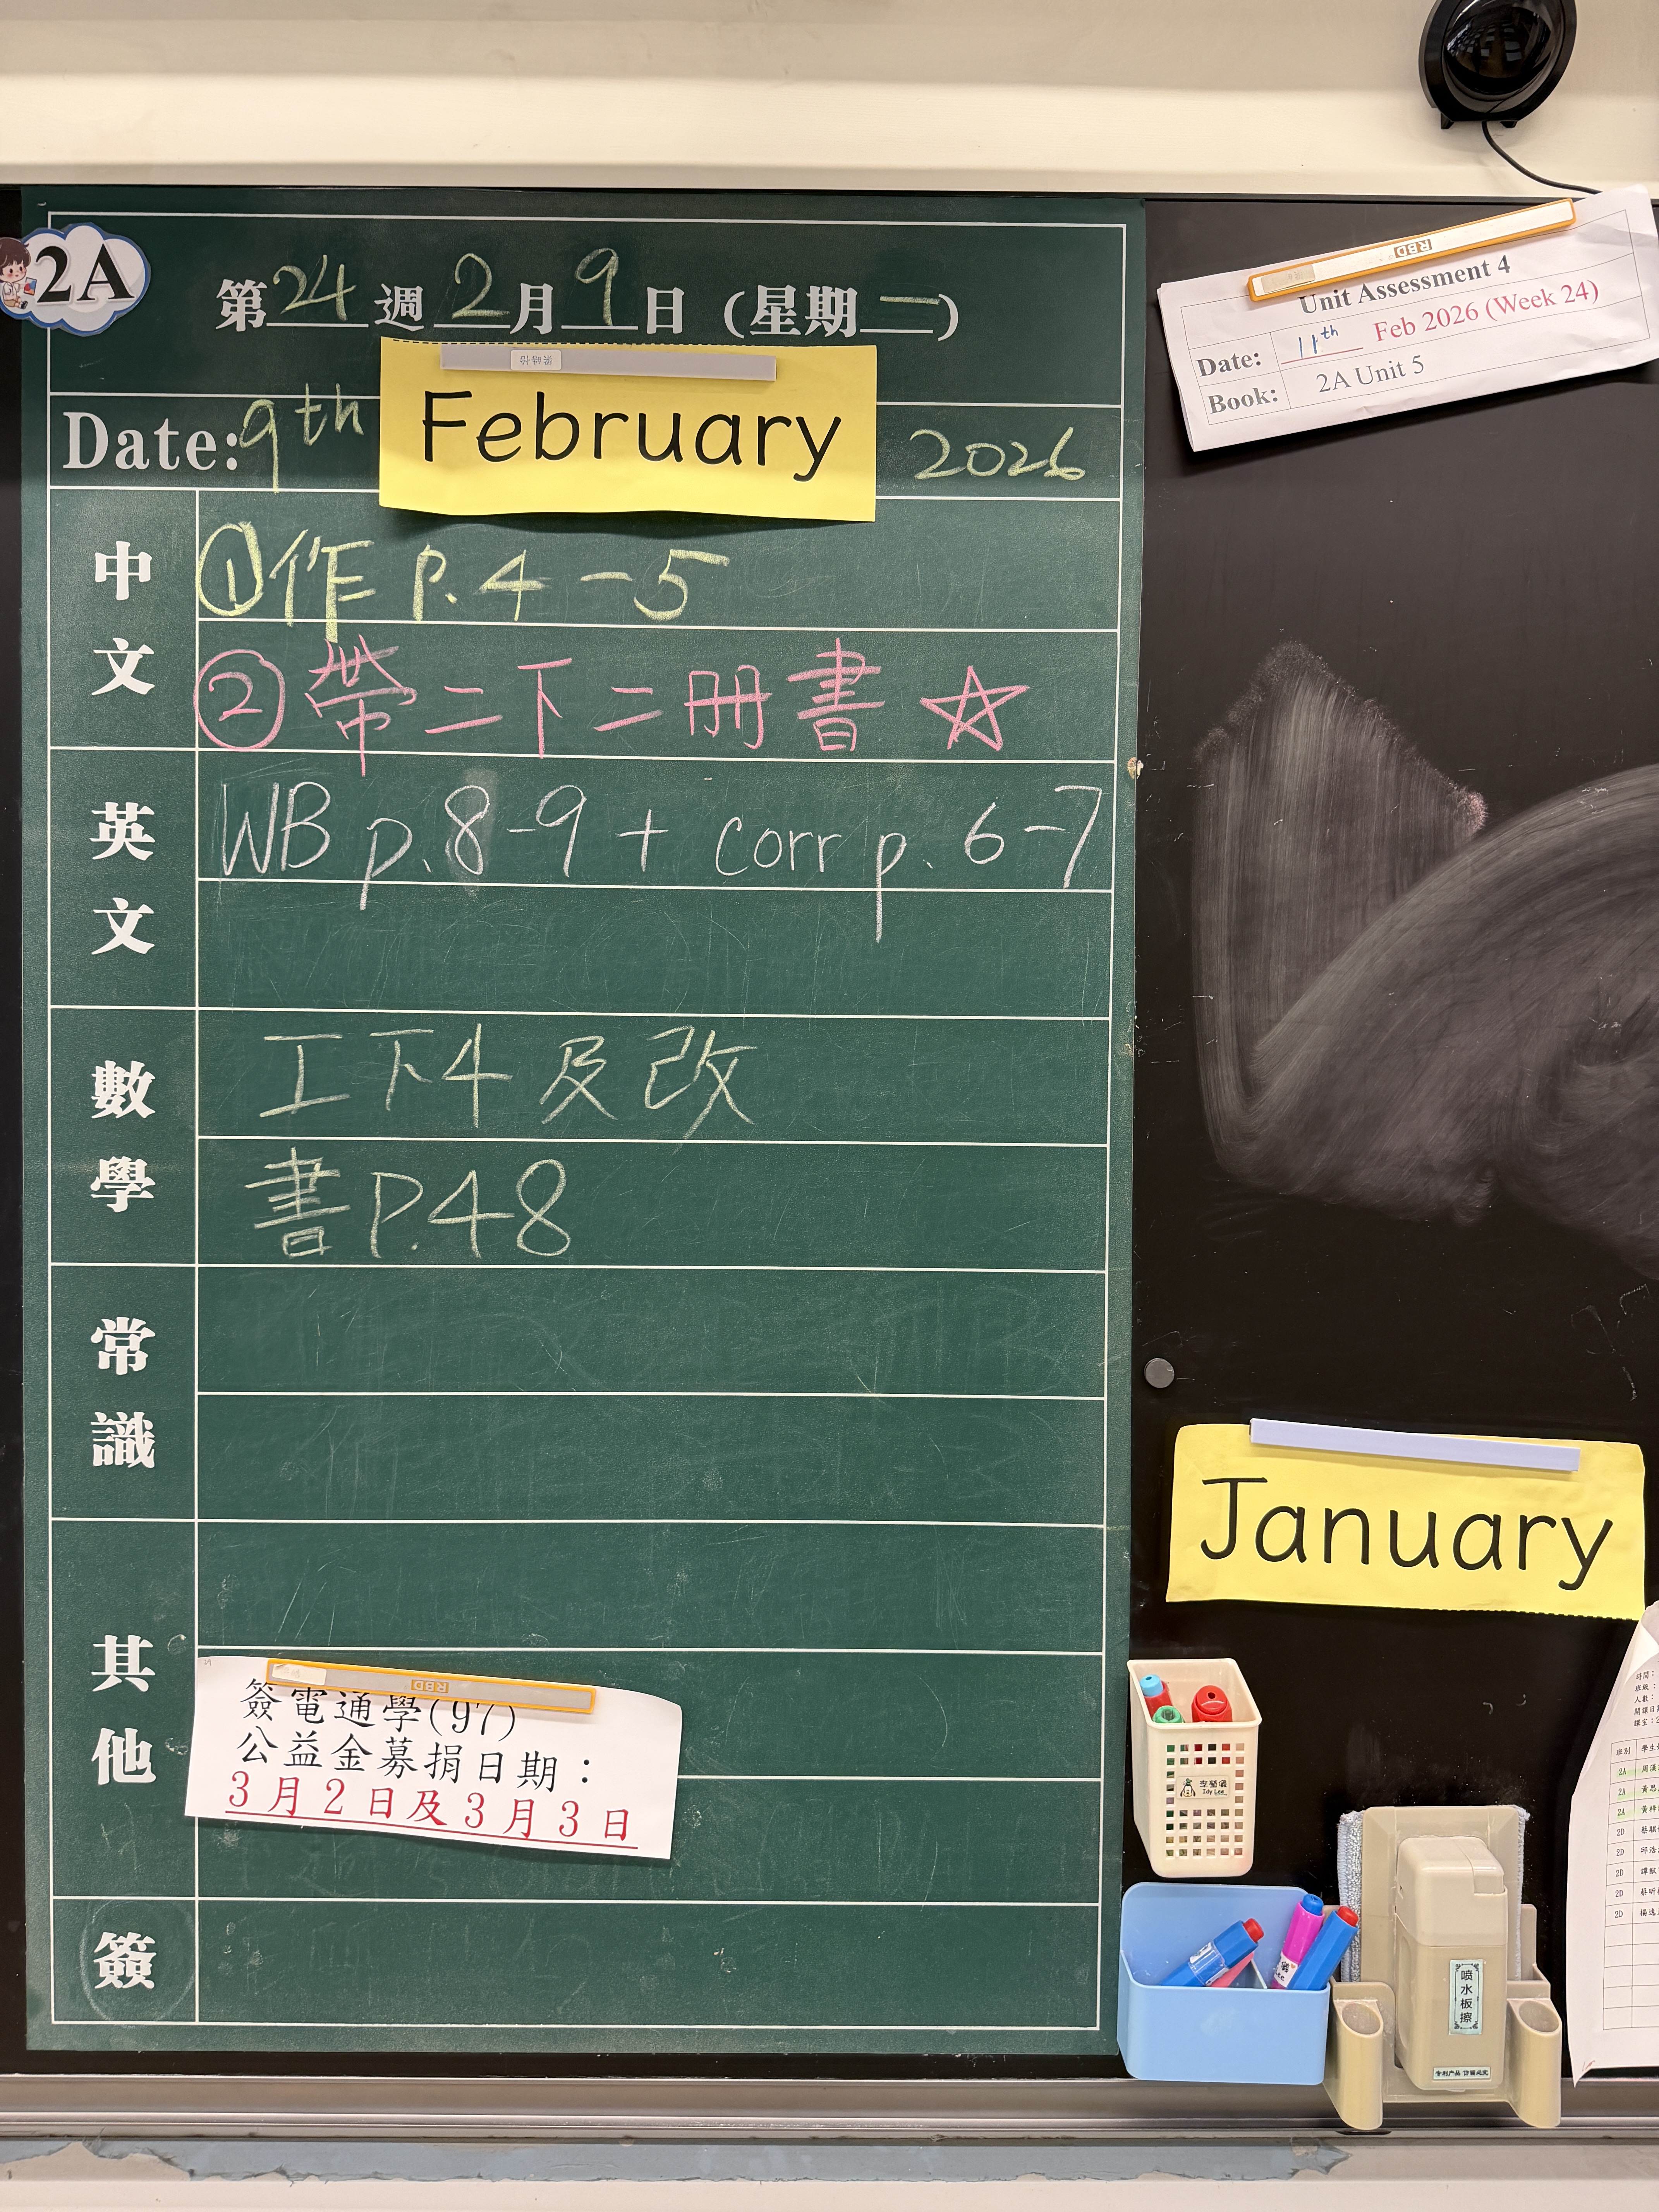 2A
第24週2月9日(星期一)
Date: 9th February 2026
中文
①作 P.4-5
②帶二下二冊書☆
英文
WB p.8-9 + corr p.6-7
數學
工下4及改
書P.48
常識
其他
簽電通學(97)
公益金募捐日期：
3月2日及3月3日
簽
RBD
Unit Assessment 4
Date: 11th Feb 2026 (Week 24)
Book: 2A Unit 5
January
RBD
喷水板擦
時間：
班級：
人數：
班別
2A
2A
2A
2D
2D
2D
2D
2D